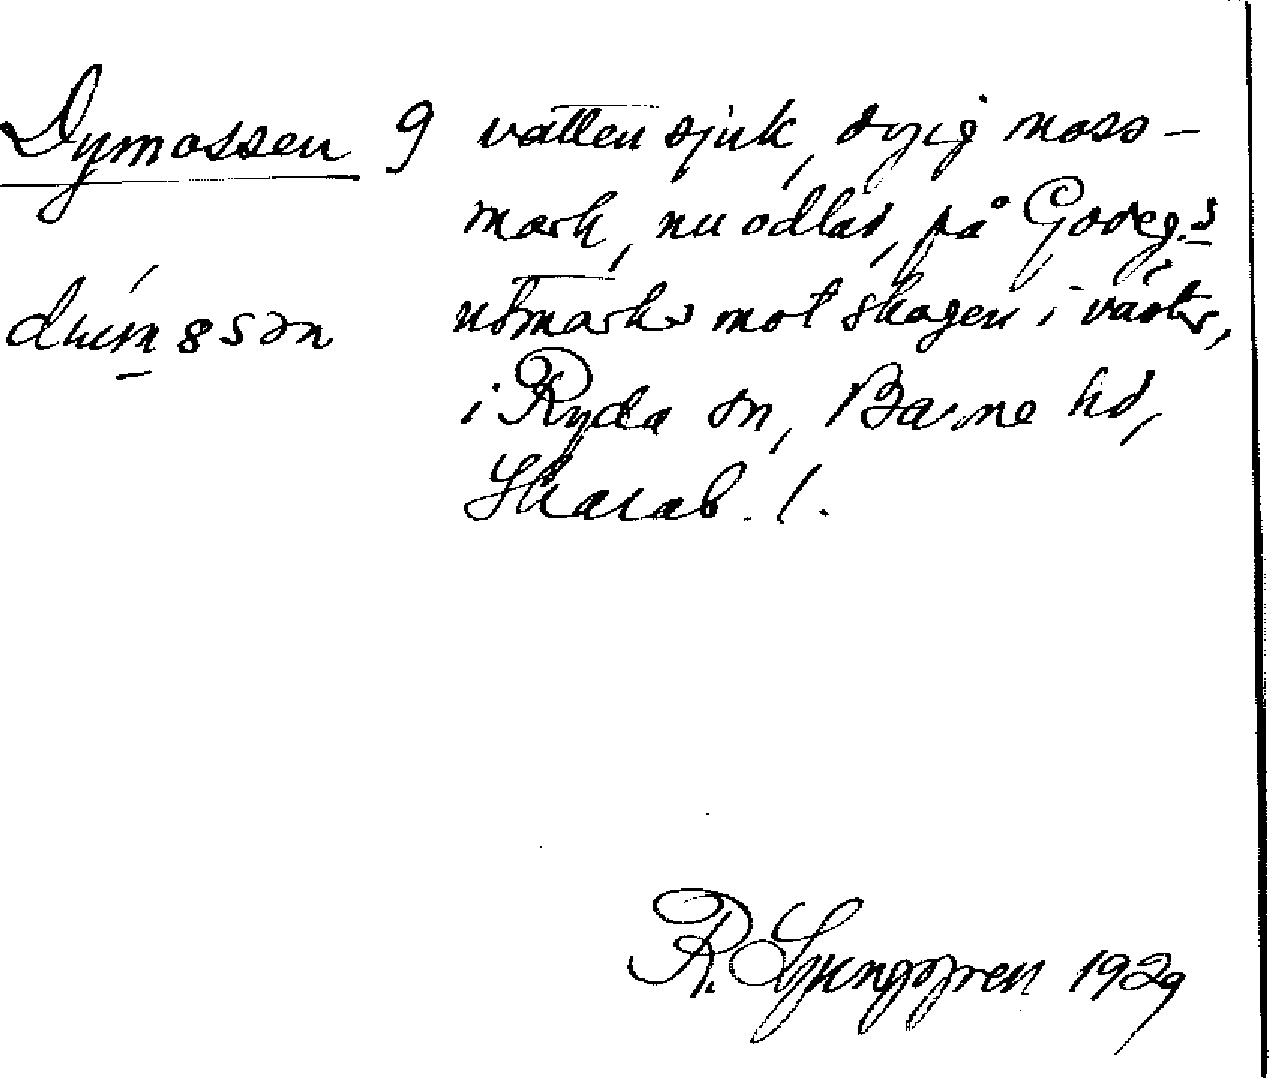 Dymossen 9 vattensjuk, dyig moss-
mark, nu odlad, på Godeg:s
utmarks mot skogen i väster,
i Ryda sn, Barne hd,
Skarab. l.
R. Ljunggren 1929